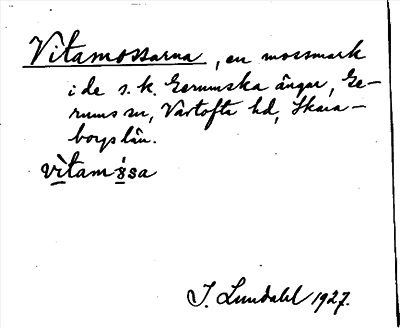 Vitamossarna, en mossmark
i de s. k. Gerumska ängar, Ge-
rums sn, Vartofta hd, Skara-
borgs län.
vìtamåssa
I. Lundahl 1927.